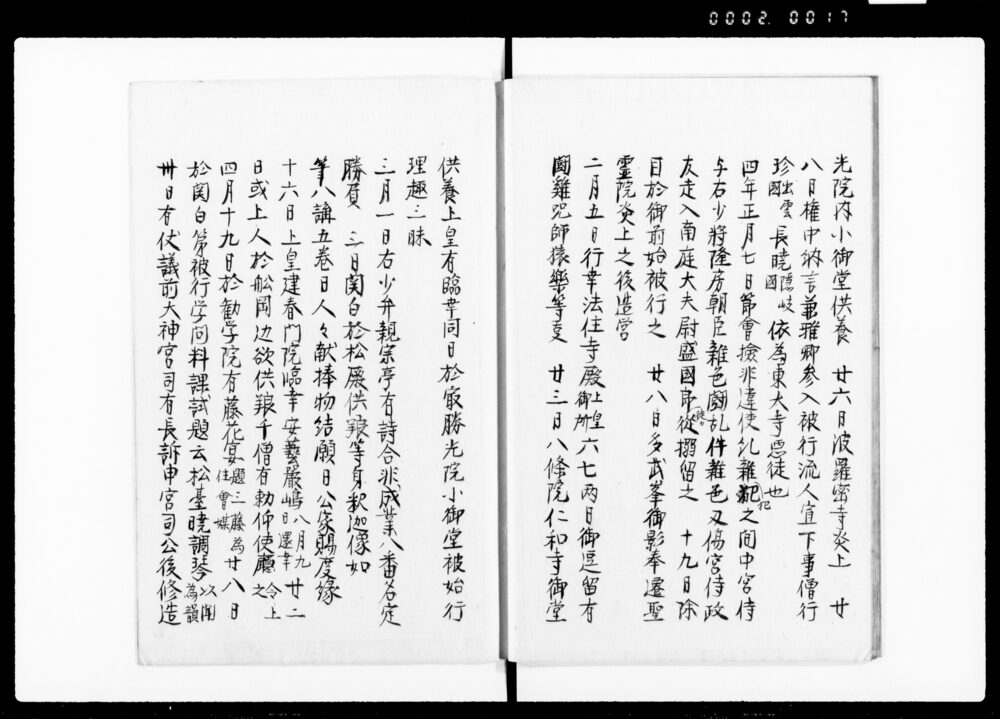 0002.0017
光院内小御堂供養　廿六日波羅密寺炎上　廿
八日権中納言兼雅卿参入被行流人宣下事僧行
珍出雲国　長暁隠岐国　依為東大寺悪徒也
四年正月七日節會撿非違使糺雑犯之间中宮侍
与右少将隆房朝臣雑色闘乱件雑色刃傷宮侍政
友走入南庭大夫尉盛國郎従搦留之　十九日除
目於御前始被行之　廿八日多武峯御影奉遷聖
霊院炎上之後造営
二月五日行幸法住寺殿上皇御所六七両日御逗留有
闘雞咒師猿樂等㕝　廿三日八條院仁和寺御堂
供養上皇有臨幸同日於㝡勝光院小御堂被始行
理趣三昧
三月一日右少弁親宗亭有詩合非成業八番名定
勝負　三日関白於松殿供養等身釈迦像如
筆八講五巻日人々献捧物結願日公家賜度縁
十六日上皇建春門院臨幸安藝嚴嶋八月九日還幸　廿二
日或上人於舩岡边欲供養千僧有勅仰使廳令上之
四月十九日於勧学院有藤花宴題三藤為住會媒　廿八日
於関白第被行学问料課試題云松臺暁調琴以闻為韻
卅日有仗議前大神宮司有長訴申宮司公俊修造